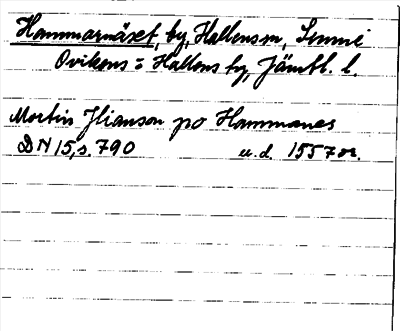 Hammarnäset, by, Hallens sn, Sunne
Ovikens o Hallens tg, Jämtl. l.
Mortin Jlianson po Hammanes
DN 15, s. 790 u.d. 1557 or.